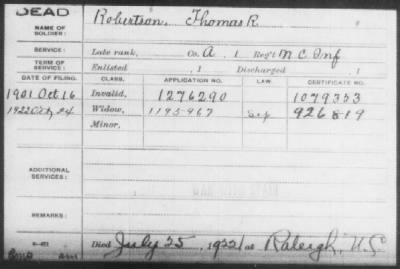 DEAD
NAME OF SOLDIER: Robertson, Thomas R.
SERVICE: Late rank, Co. A, 1 Reg't N.C. Inf
TERM OF SERVICE: Enlisted , 1 Discharged , 1
DATE OF FILING. CLASS. APPLICATION NO. LAW. CERTIFICATE NO.
1901 Oct 16 Invalid, 1276290 1079353
1922 Oct, 24 Widow, 1195967 926819
Minor,
ADDITIONAL SERVICES:
REMARKS:
Died July 25, 1922, at Raleigh, N.C.